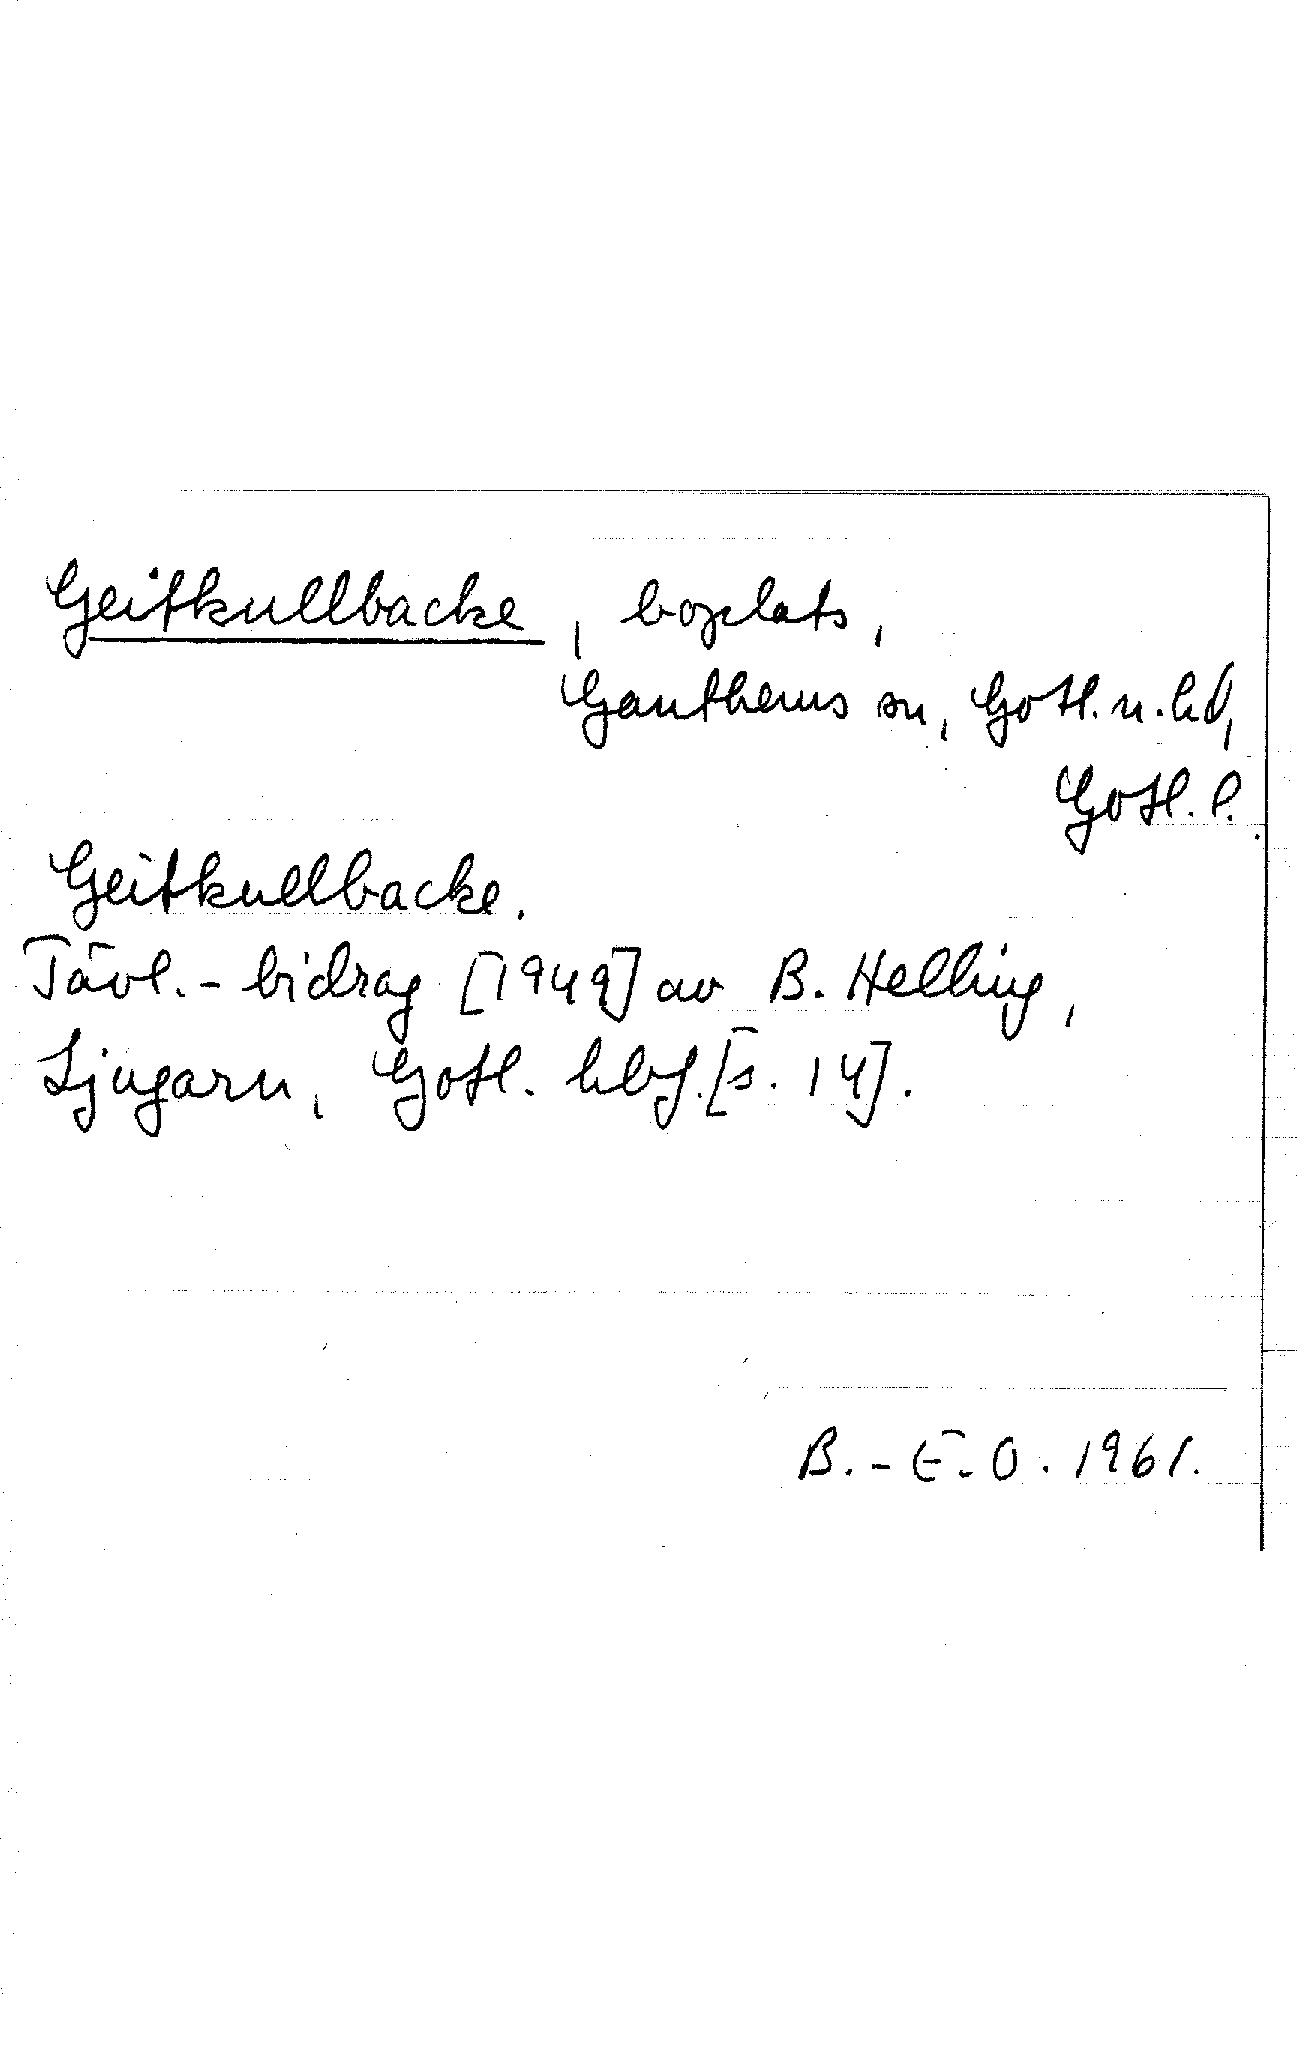 Geitkullbacke, boplats,
Ganthems sn, Gotl. n. hd,
Gotl. l.
Geitkullbacke.
Tävl.-bidrag [1949] av B. Helling,
Ljugarn, Gotl. hbf. [s. 14].
B.-E. O. 1961.